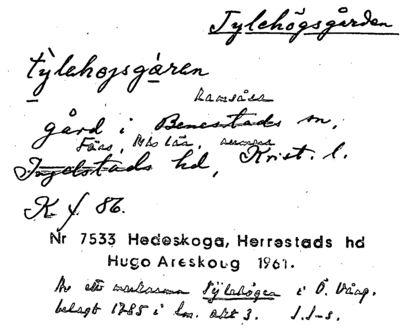 Tylehögsgården
tỳlehojsgàren
Ramsåsa
gård i Benestads sn,
Färs,
Ingelstads hd, Krist. l.
K. f. 86.
Nr 7533 Hedeskoga, Herrestads hd
Hugo Areskoug 1961.
Av ett marknamn Tylehögen i Ö. Vång,
belagt 1785 i lm. akt 3. I.I-s.